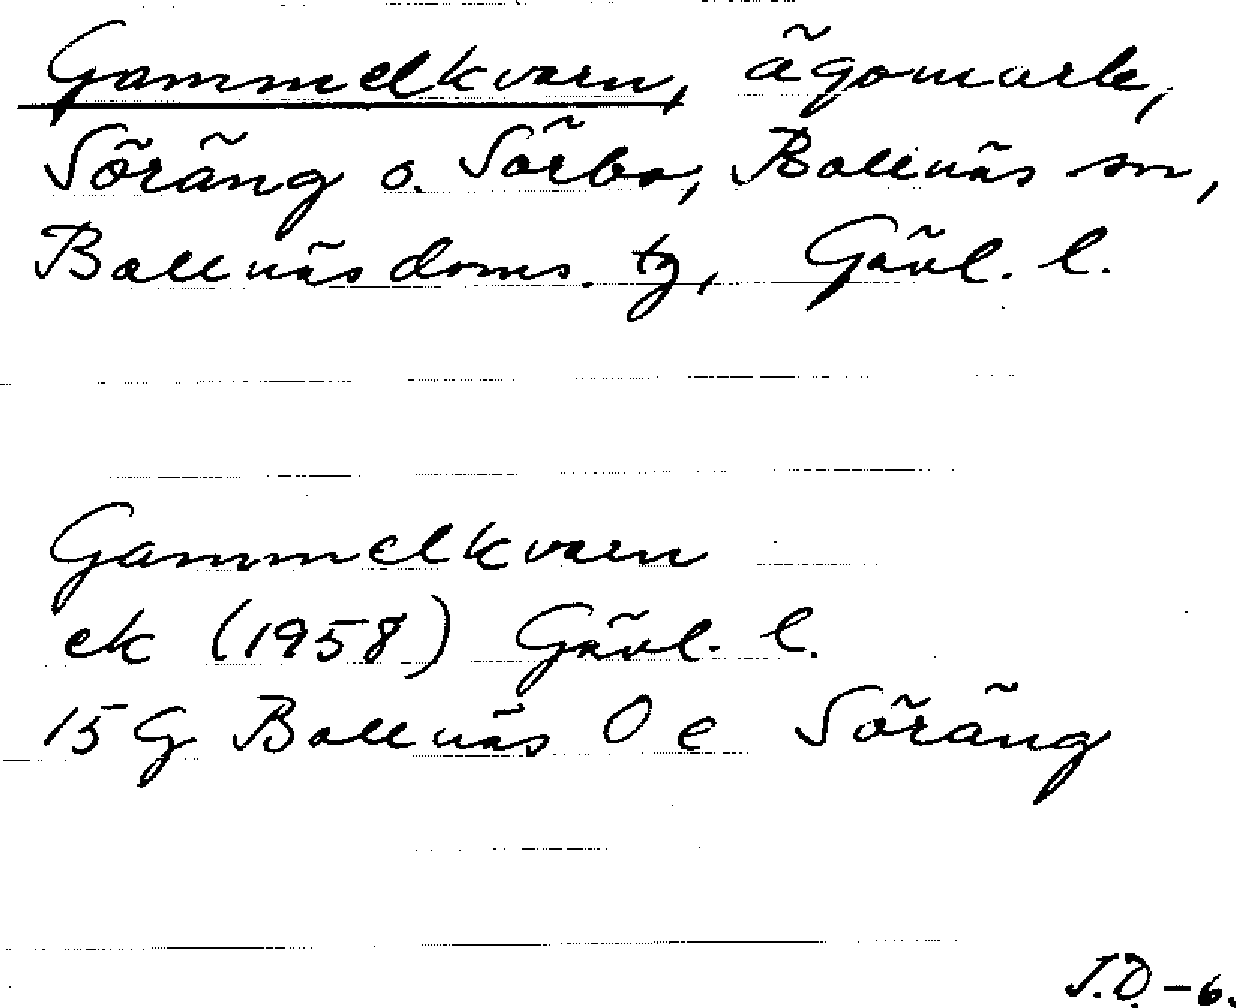 Gammelkvarn, ägomark,
Söräng o. Sörbo, Bollnäs sn,
Bollnäs doms. tg, Gävl. l.
Gammelkvarn
ek (1958) Gävl. l.
15 G Bollnäs 0 e Söräng
J.D.-6.